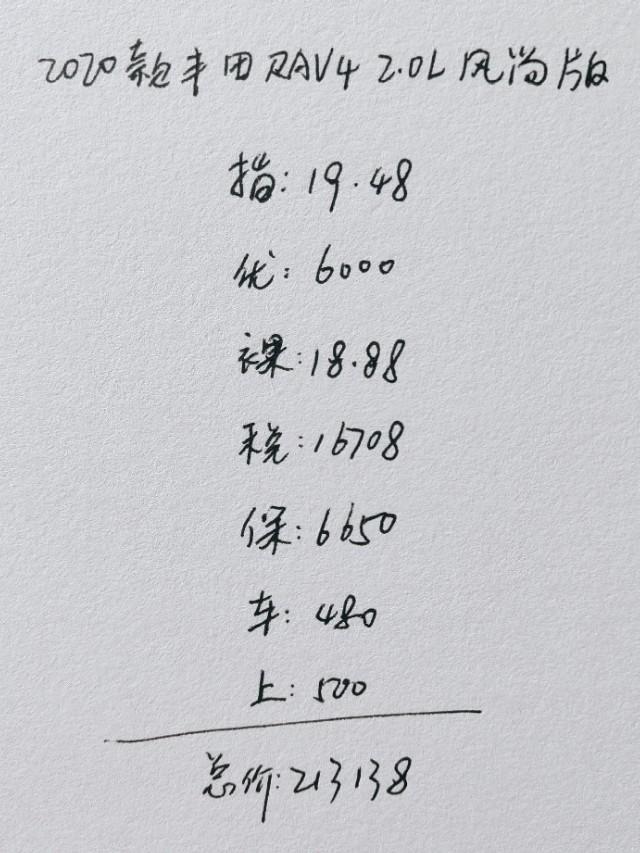 2020款丰田RAV4 2.0L风尚版
指:19.48
优:6000
裸:18.88
税:16708
保:6650
车:480
上:500
总价:213138